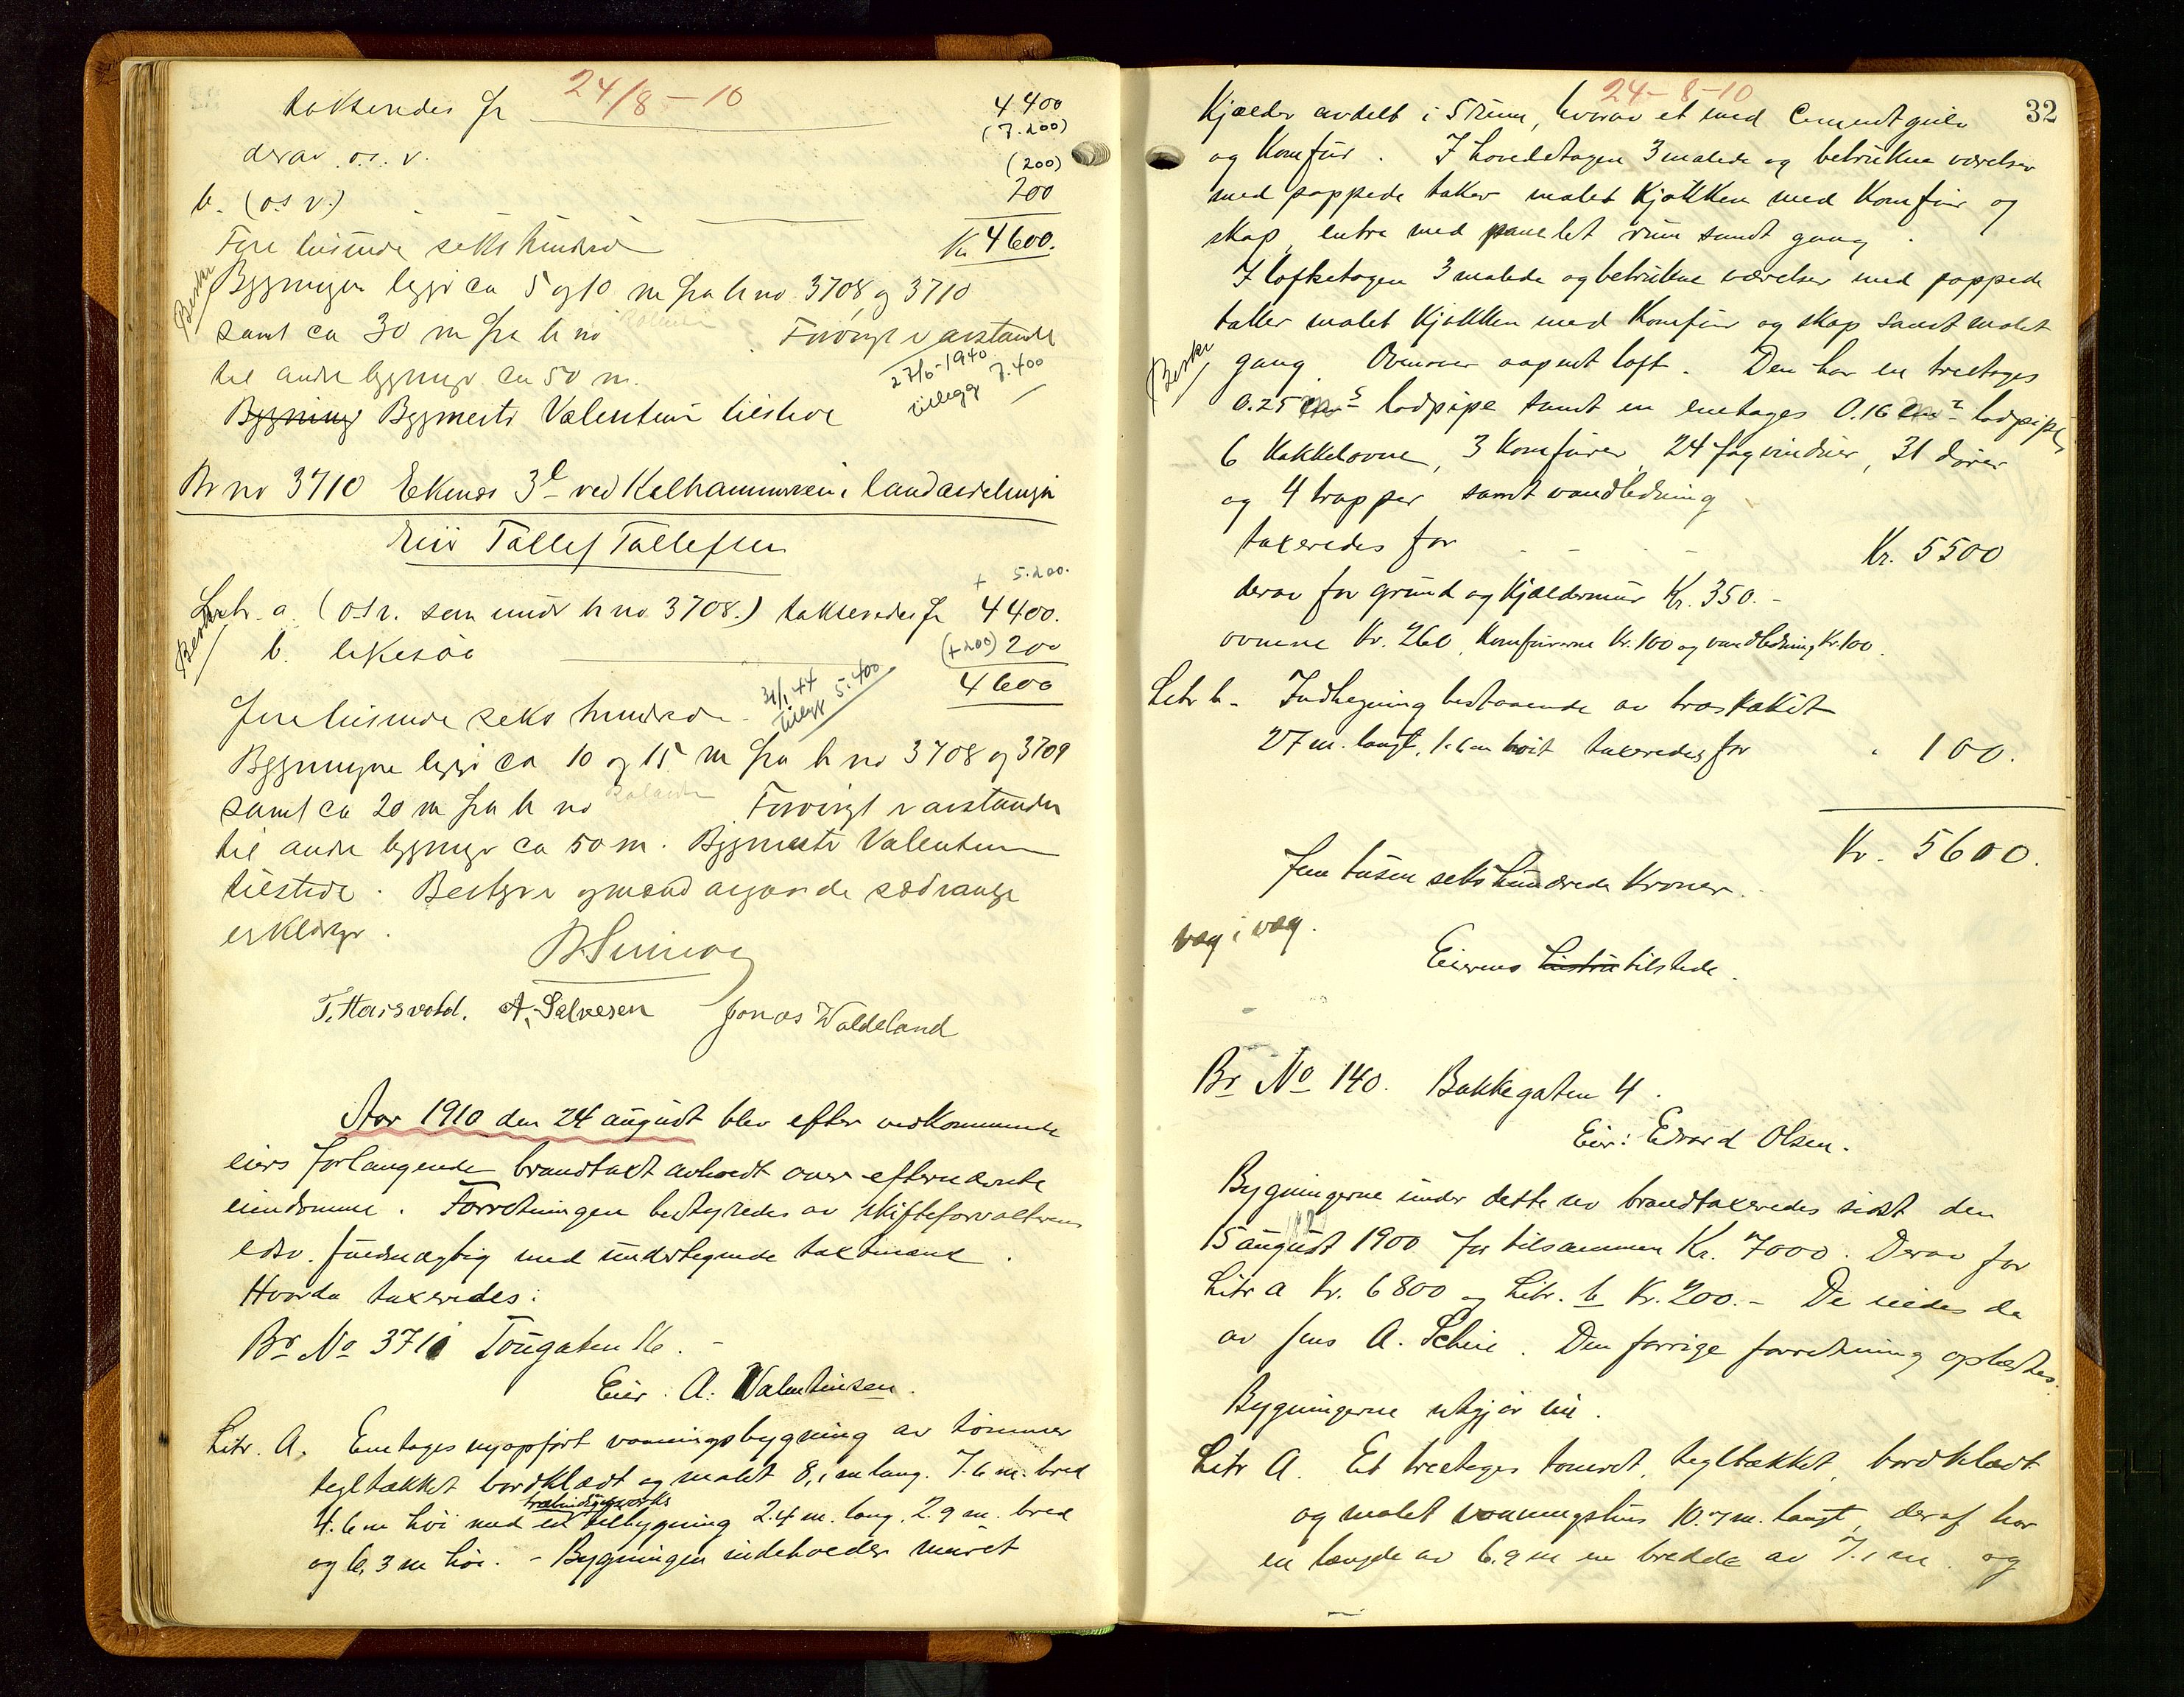 24/8-10
taksendes for 4400
(7.200)
derav o.s.v. (200)
b. (o s v.) 200
Fire tusinde sekshundrede Kr 4600.
Beskr
Bygningen ligger ca 5 og 10 m fra br no 3708 og 3710
samt ca 30 m fra br no Forøvrigt er avstanden
til andre bygninger ca 50 m.
27/6-1940
tillegg 7.400
Bygning Bygmester Valentinsen tilstede
Br no 3710 Ekenes 3d ved Kalhammerveien i landavdelingen
Eier Tallef Tallefsen
+ 5.200.
Litr. a. (o s v. som under br no 3708.) takseredes for 4400.
Beskr
b. likesaa (+200) 200
4600
fire tusinde seks hundrede
31/1 44
tillegg 5.400
Bygningene ligger ca 10 og 15 m fra br no 3708 og 3709
samt ca 20 m fra br no Forøvrigt er avstanden
til andre bygninger ca 50 m. Bygmester Valentinsen
tilstede. Bestyrer og mænd avgav de sedvanlige
erklæringer.
T. Hoisvold. A. Salvesen Jonas Waldeland
Aar 1910 den 24 august blev efter vedkommende
eiers forlangende brandtakst avholdt over efternævnte
eiendomme. Forretningen bestyredes av skifteforvalterens
edsv. fuldmægtig med undertegnede taxtmænd.
Hvorda taxeredes:
Br No 3711 Tougaten 16.
Eier: A. Valentinsen.
Litr. A. Enetages nyopført vaaningsbygning av tømmer
tegltækket bordklædt og malet 8,1 m lang. 7.6 m. bred
4.6 m høi med en træbindingsverks tilbygning 2.4 m. lang, 2.9 m. bred
og 6,3 m høi. - Bygningen indeholder muret
24-8-10
32
Kjælder avdelt i 5 rum, hvorav et med Cementgulv
og Komfur. I hovedetagen 3 malede og betrukne værelser
med pappede taker malet Kjøkken med Komfur og
skap, entre med panelet rum samt gang.
I loftsetagen 3 malede og betrukne værelser med pappede
takker malet Kjøkken med Komfur og skap samt malet
Beskr
gang. Ovenover aapent loft. Den har en treetages
0.25 m² lodpipe samt en enetages 0.16 m² lodpipe,
6 Kakkelovne, 3 Komfurer, 24 fag vinduer, 31 dører
og 4 trapper samt vandledning
taxeredes for Kr. 5500
derav for grund og Kjældermur Kr. 350.-
ovnene Kr. 260, Komfurerne Kr. 100 og vandledning Kr. 100.
Litr b. Indhegning bestaaende av træstakit
27 m. langt, 1.6 m høit taxeredes for " 100.
Kr. 5600.
Fem tusen sekshundrede Kroner.
væg i væg.
Eierens hustru tilstede.
Br No 140. Bakkegaten 4.
Eier: Edvard Olsen.
Bygningerne under dette no brandtaxeredes sidst den
15 august 1900 for tilsammen Kr. 7000. Derav for
Litr a Kr. 6800 og Litr. b Kr. 200.- De eiedes da
av Jens A. Scheie. Den forrige forretning oplæstes.
Bygningerne utgjør nu.
Litr A. Et treetages tømret, tegltækket, bordklædt
og malet vaaningshus 10.7 m. langt, deraf har
en længde av 6.9 m en bredde av 7.1 m. og